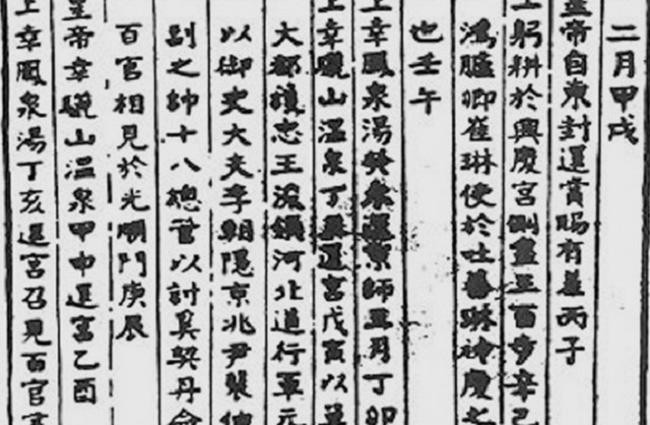 二月甲戌
皇帝自東封還賞賜有差丙子
上躬耕於興慶宮側盡三百步辛巳
鴻臚卿崔琳使於吐蕃琳神慶之
也壬午
上幸鳳泉湯癸未還京師 月丁卯
上幸驪山溫泉丁 還宮戊寅以單
大都護忠王浚領河北道行軍元
以御史大夫李朝隱京兆尹裴伷
副之帥十八總管以討奚契丹命
百官相見於光順門庚辰
皇帝幸驪山溫泉甲申還宮乙酉
上幸鳳泉湯丁亥還宮召見百官